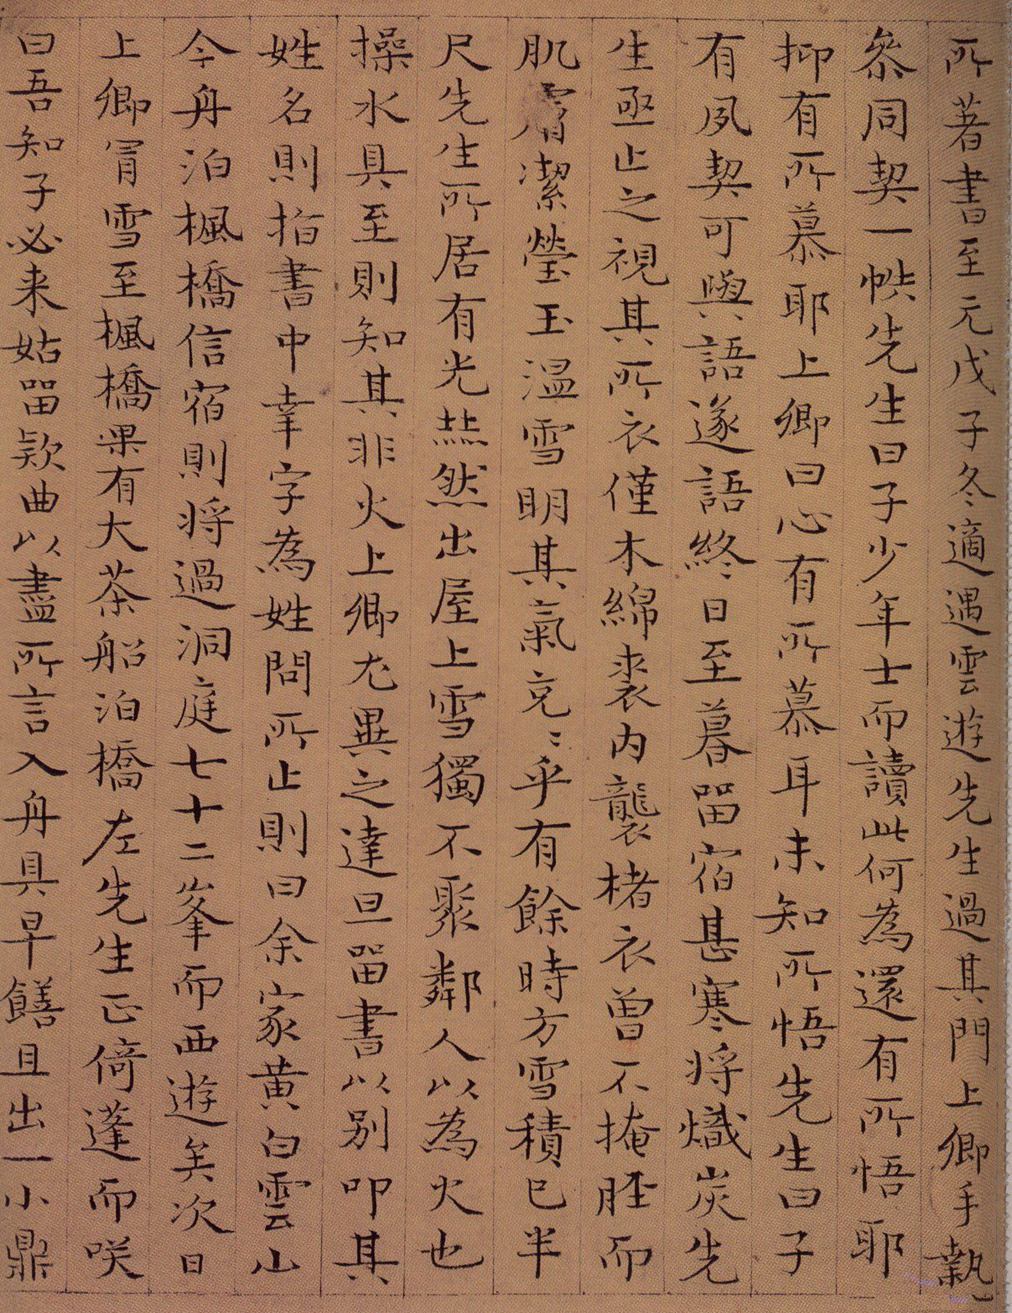 所著書至元戊子冬適遇雲遊先生過其門上卿手執
叅同契一帙先生曰子少年士而讀此何為還有所悟耶
抑有所慕耶上卿曰心有所慕耳未知所悟先生曰子
有夙契可與語遂語終日至暮留宿甚寒將熾炭先
生亟止之視其所衣僅木綿裘内襲楮衣曾不掩胫而
肌膚潔瑩玉温雪明其氣充〻乎有餘時方雪積已半
尺先生所居有光𦶜然出屋上雪獨不聚鄰人以為火也
操水具至則知其非火上卿尤異之達旦留書以别叩其
姓名則指書中幸字為姓問所止則曰余家黄白雲山
今舟泊楓橋信宿則将過洞庭七十二峯而西遊矣次日
上卿冐雪至楓橋果有大茶船泊橋左先生正倚蓬而咲
曰吾知子必来姑留欵曲以盡所言入舟具早饍且出一小鼎